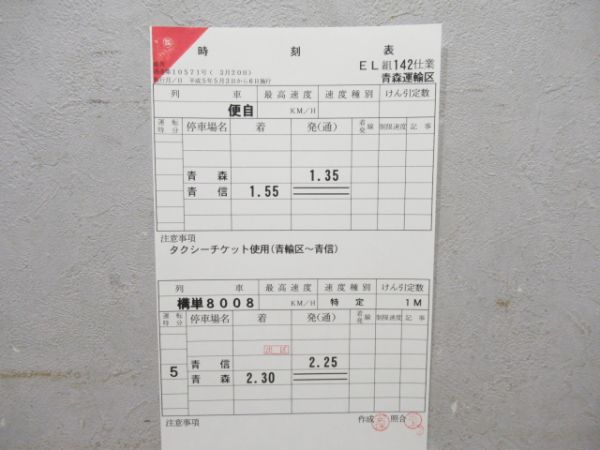 時刻表
ＥＬ組142仕業
青森運輸区
第10571号(3月20日)
施行月／日 平成5年5月2日から6日施行
列車 最高速度 速度種別 けん引定数
便自 KM／H
運転時分 停車場名 着 発(通) 着発線 制限速度 記事
青森 1.35
青信 1.55
注意事項
タクシーチケット使用(青輸区〜青信)
列車 最高速度 速度種別 けん引定数
構単8008 KM／H 特定 1M
運転時分 停車場名 着 発(通) 着発線 制限速度 記事
出区
青信 2.25
5 青森 2.30
注意事項 作成 照合